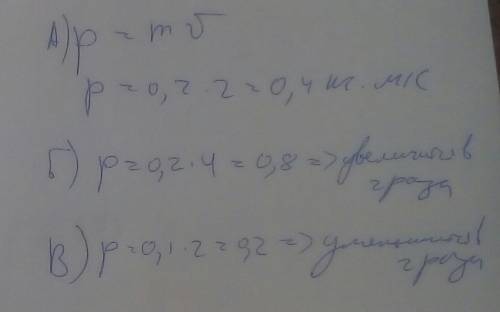 А) p = m v
p = 0,2 · 2 = 0,4 кг · м/с
Б) p = 0,2 · 4 = 0,8 => увеличится в
2 раза
В) p = 0,1 · 2 = 0,2 => уменьшится в
2 раза